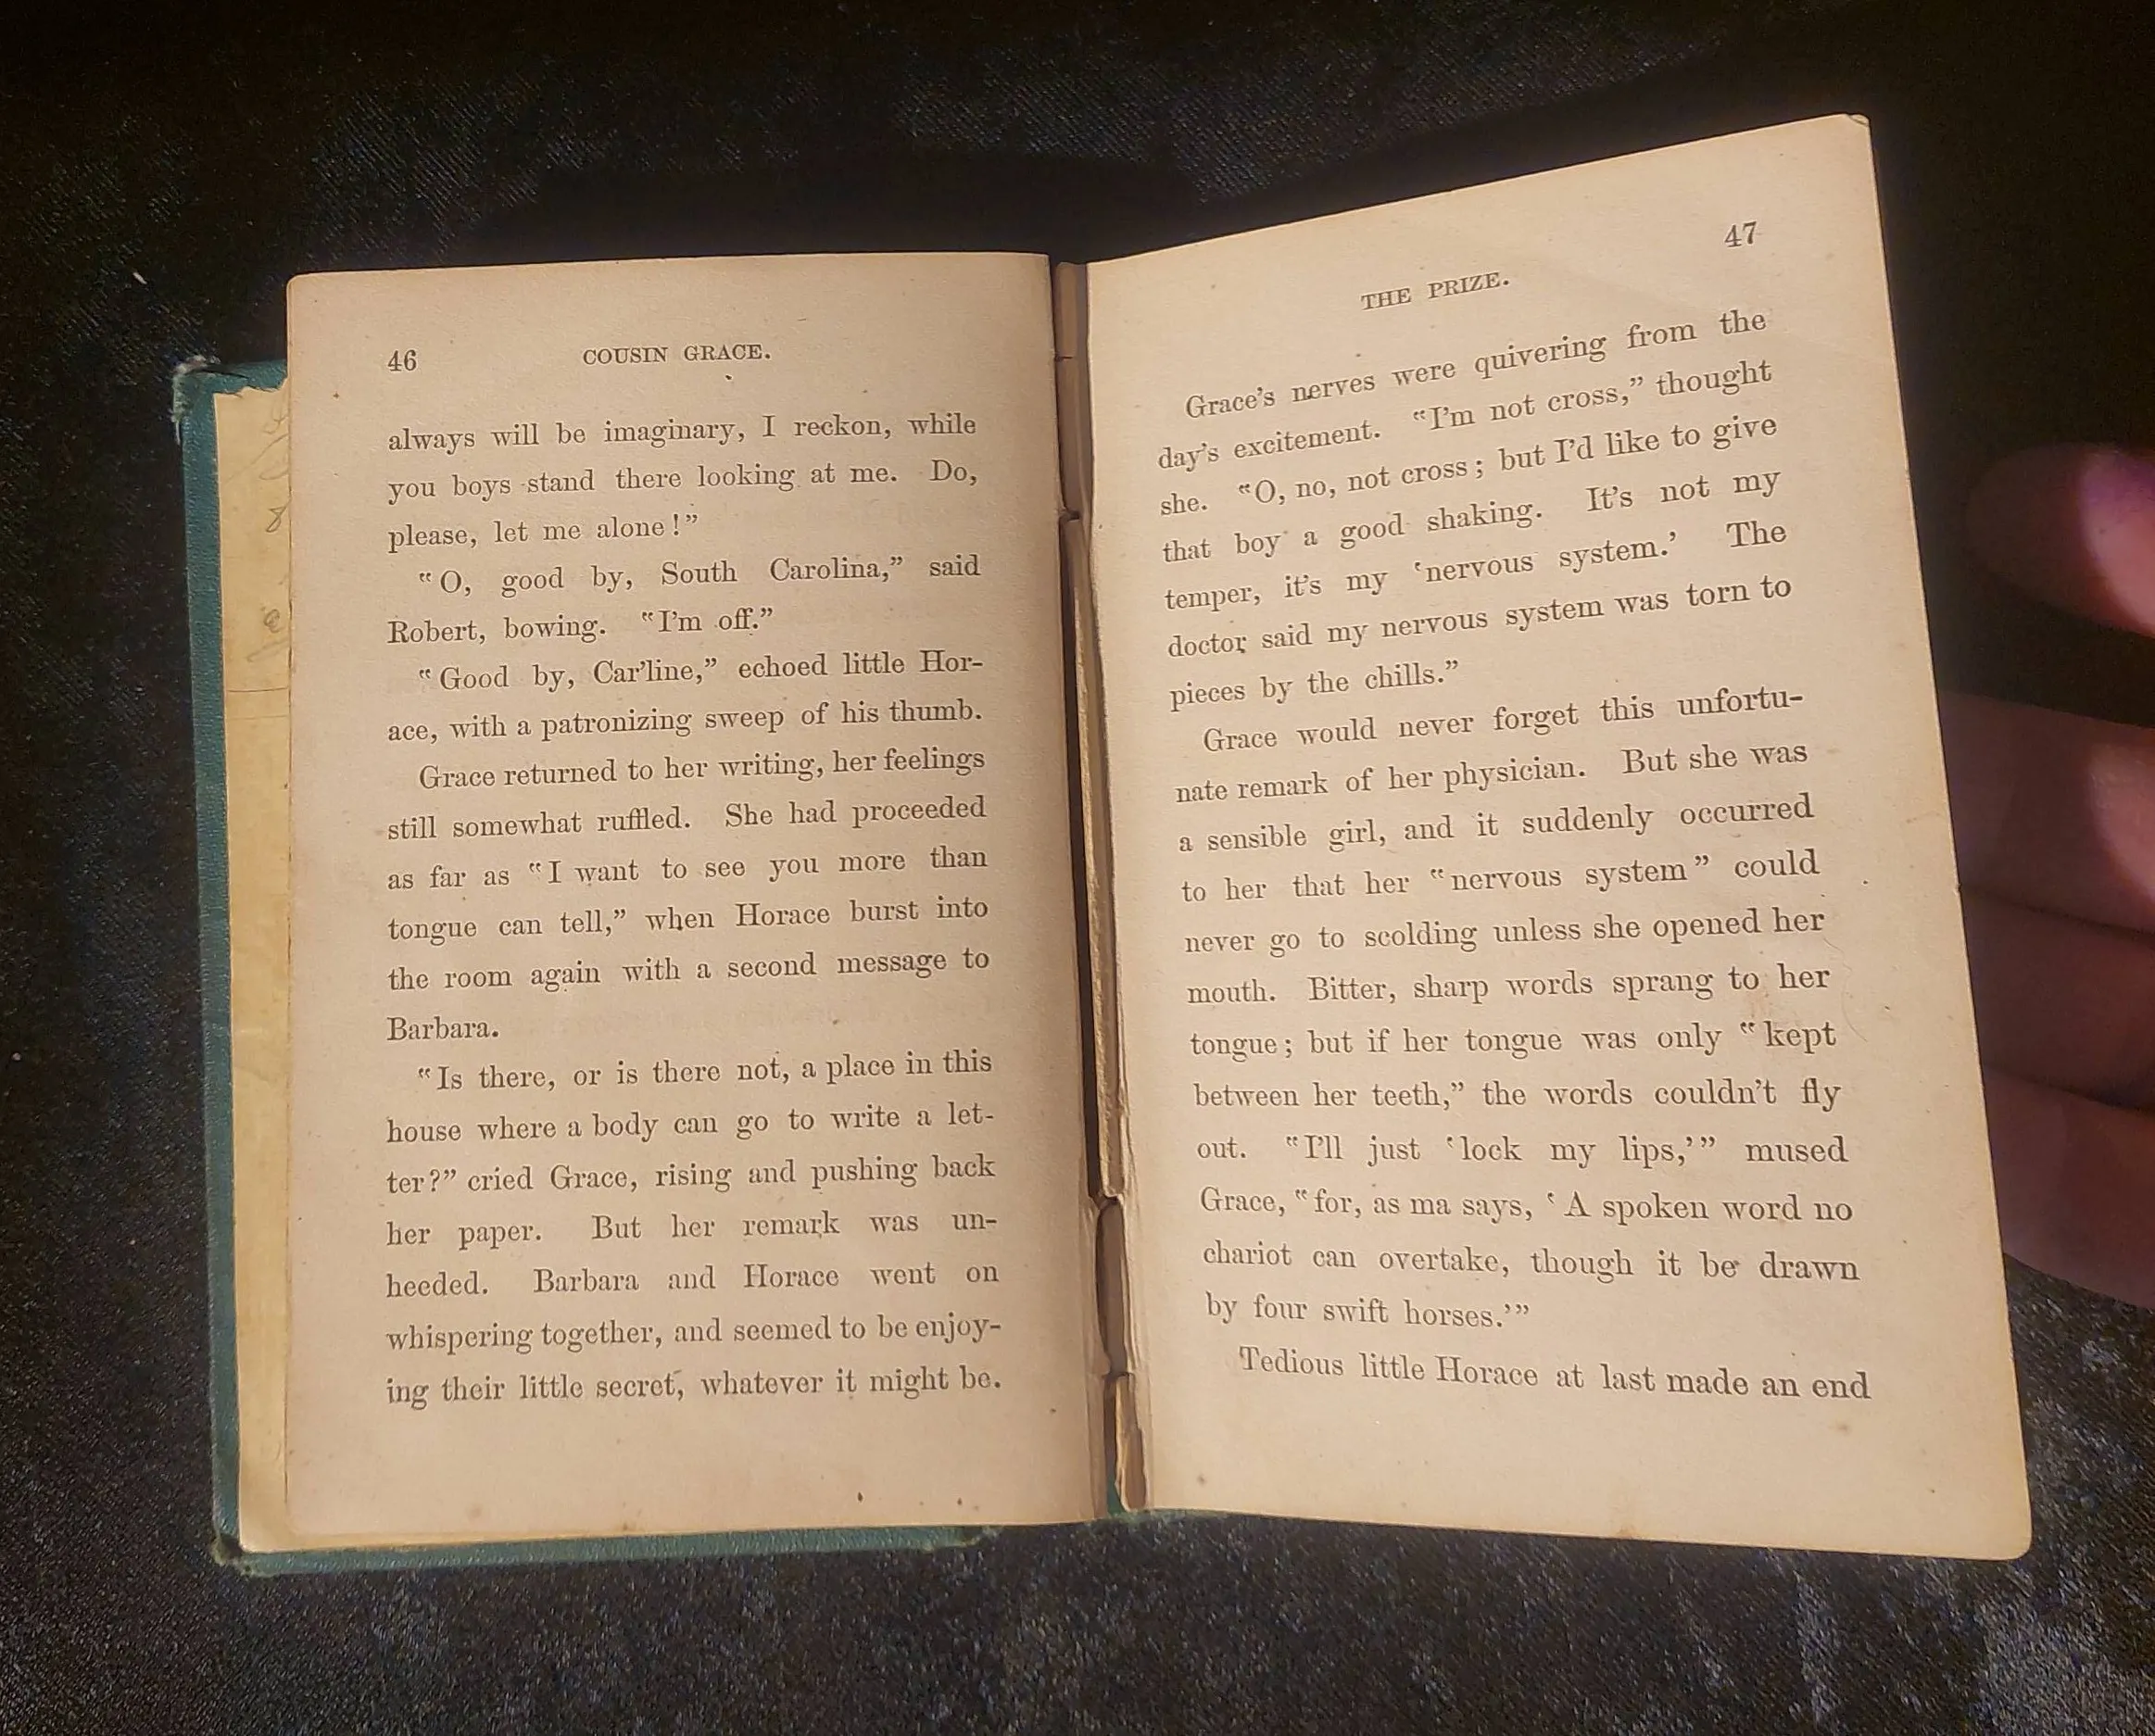 46 COUSIN GRACE.
always will be imaginary, I reckon, while
you boys stand there looking at me. Do,
please, let me alone!”
“O, good by, South Carolina,” said
Robert, bowing. “I’m off.”
“Good by, Car’line,” echoed little Hor-
ace, with a patronizing sweep of his thumb.
Grace returned to her writing, her feelings
still somewhat ruffled. She had proceeded
as far as “I want to see you more than
tongue can tell,” when Horace burst into
the room again with a second message to
Barbara.
“Is there, or is there not, a place in this
house where a body can go to write a let-
ter?” cried Grace, rising and pushing back
her paper. But her remark was un-
heeded. Barbara and Horace went on
whispering together, and seemed to be enjoy-
ing their little secret, whatever it might be.
THE PRIZE. 47
Grace’s nerves were quivering from the
day’s excitement. “I’m not cross,” thought
she. “O, no, not cross; but I’d like to give
that boy a good shaking. It’s not my
temper, it’s my ‘nervous system.’ The
doctor said my nervous system was torn to
pieces by the chills.”
Grace would never forget this unfortu-
nate remark of her physician. But she was
a sensible girl, and it suddenly occurred
to her that her “nervous system” could
never go to scolding unless she opened her
mouth. Bitter, sharp words sprang to her
tongue; but if her tongue was only “kept
between her teeth,” the words couldn’t fly
out. “I’ll just ‘lock my lips,’” mused
Grace, “for, as ma says, ‘A spoken word no
chariot can overtake, though it be drawn
by four swift horses.’”
Tedious little Horace at last made an end